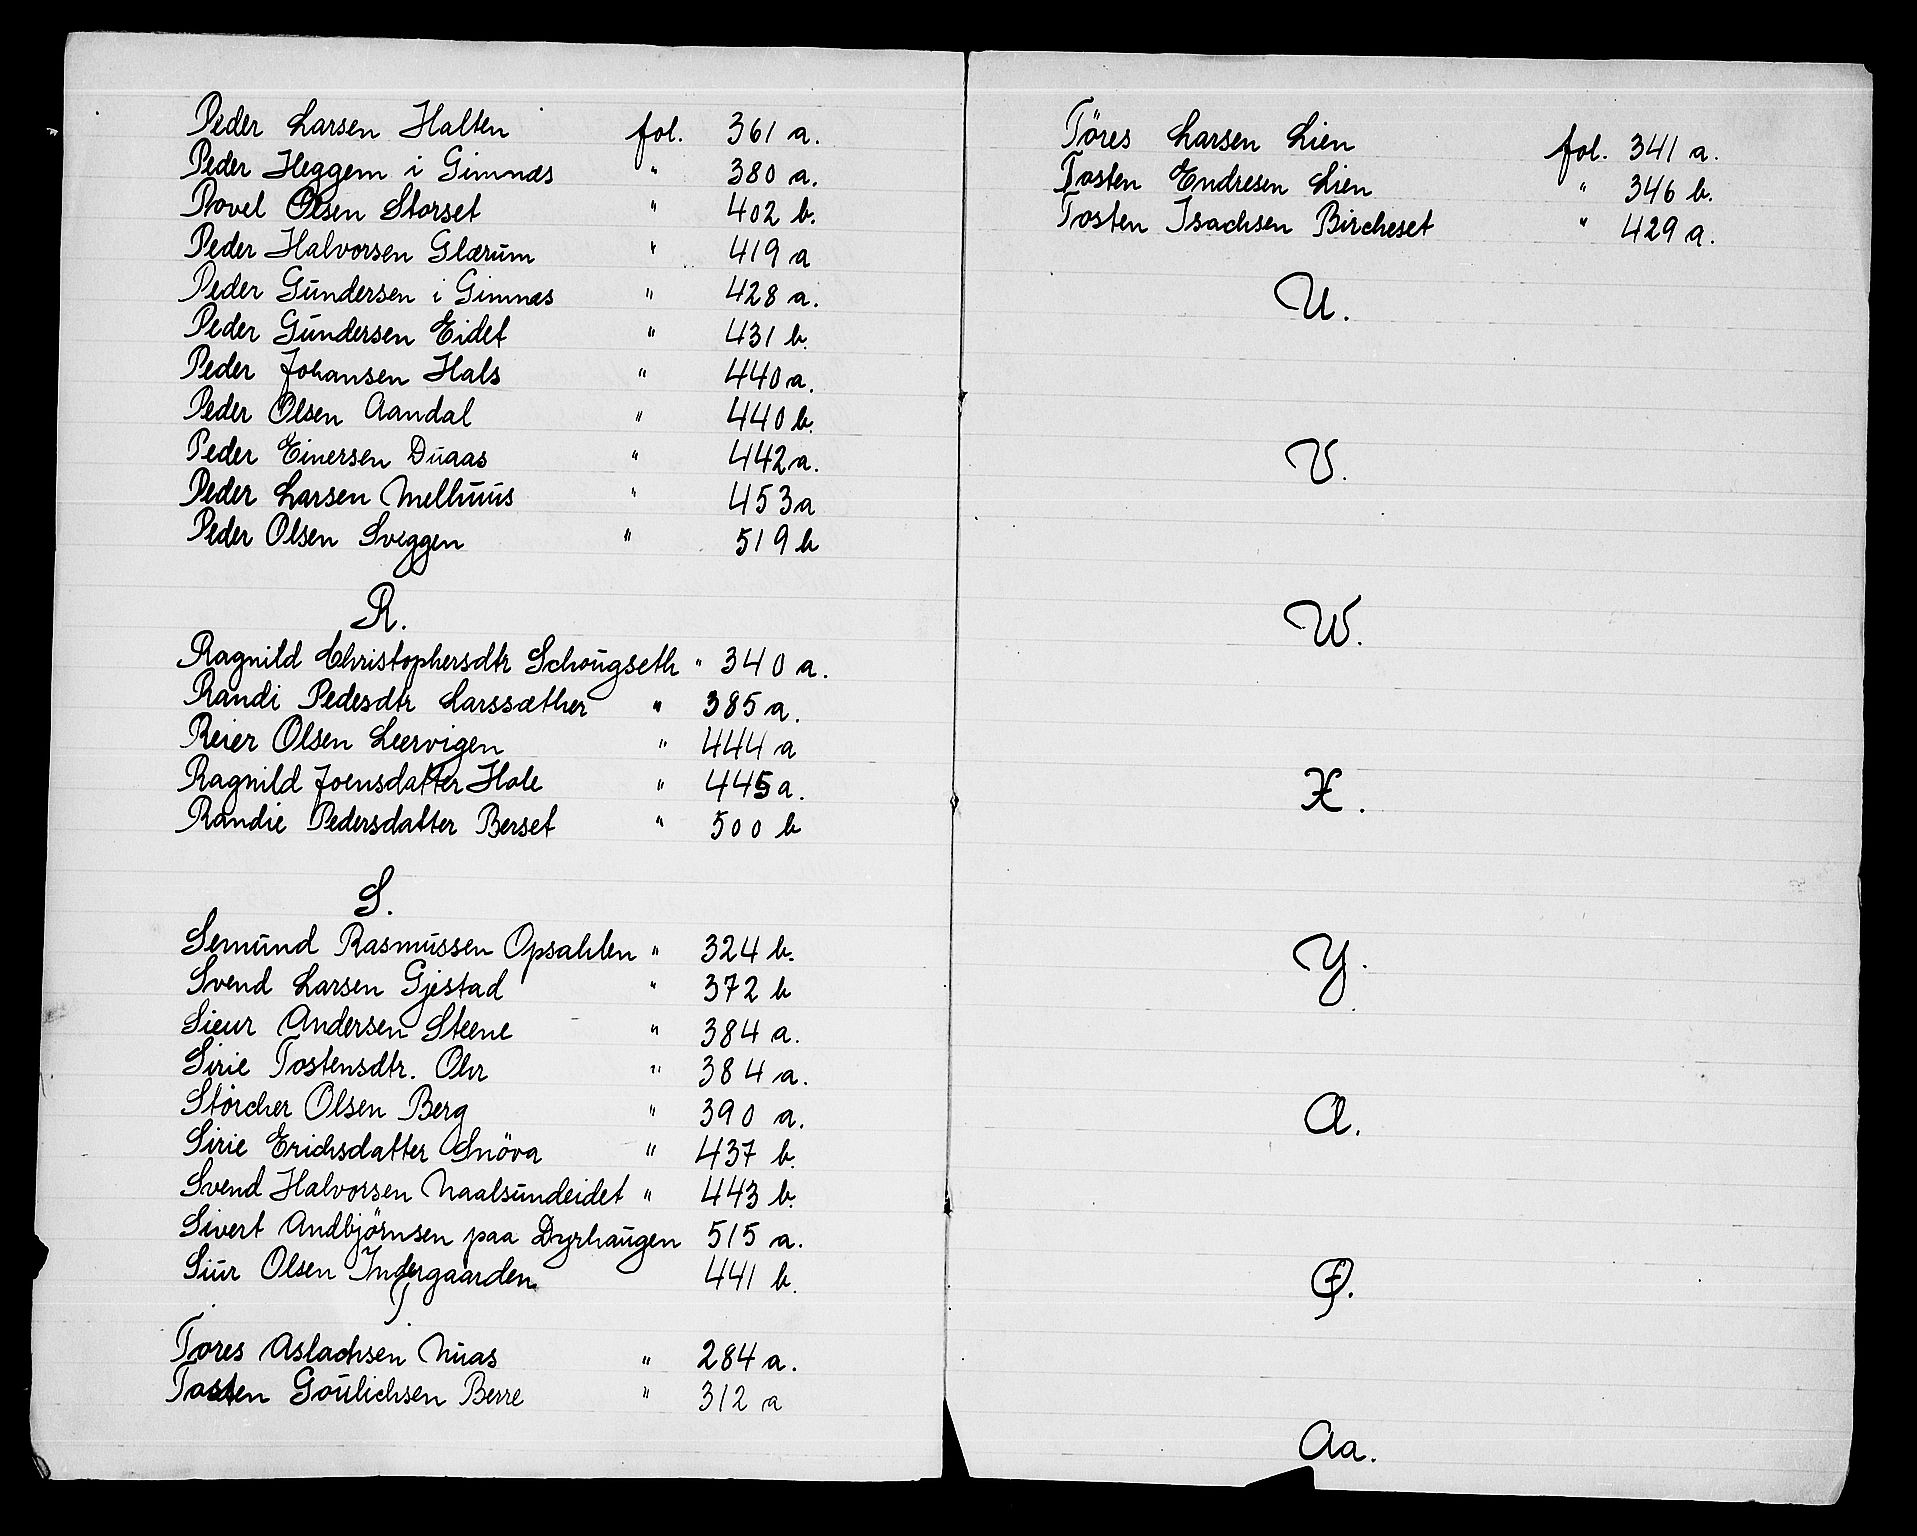 Peder Larsen Halten fol. 361 a.
Peder Heggem i Gimnæs " 380 a.
Povel Olsen Storset " 402 b.
Peder Halvorsen Glærum " 419 a
Peder Gundersen i Gimnæs " 428 a.
Peder Gundersen Eidet " 431 b.
Peder Johansen Hals " 440 a.
Peder Olsen Aandal " 440 b.
Peder Einersen Duaas " 442 a.
Peder Larsen Melhuus " 453 a
Peder Olsen Sveggen " 519 b
R.
Ragnild Christophersdtr Schougseth " 340 a.
Randi Pedesdtr Larssæther " 385 a.
Reier Olsen Leervigen " 444 a
Ragnild Joensdatter Hole " 445 a.
Randie Pedersdatter Berset " 500 b
S.
Semund Rasmussen Opsahlen " 324 b.
Svend Larsen Gjestad " 372 b
Sieur Andersen Steene " 384 a.
Sirie Tostensdtr. Ohr " 384 a.
Störcher Olsen Berg " 390 a.
Sirie Erichsdatter Snöva " 437 b.
Svend Halvorsen Naalsundeidet " 443 b.
Sivert Andbjörnsen paa Dyrhaugen 515 a.
Siur Olsen Indergaarden 441 b.
T
Tores Aslachsen Nuas " 284 a.
Tosten Goulichsen Berre " 312 a
Töres Larsen Lien fol. 341 a.
Tosten Endresen Lien " 346 b.
Tosten Isachsen Bircheset " 429 a.
U.
V.
W.
X.
Y.
Ø.
Aa.